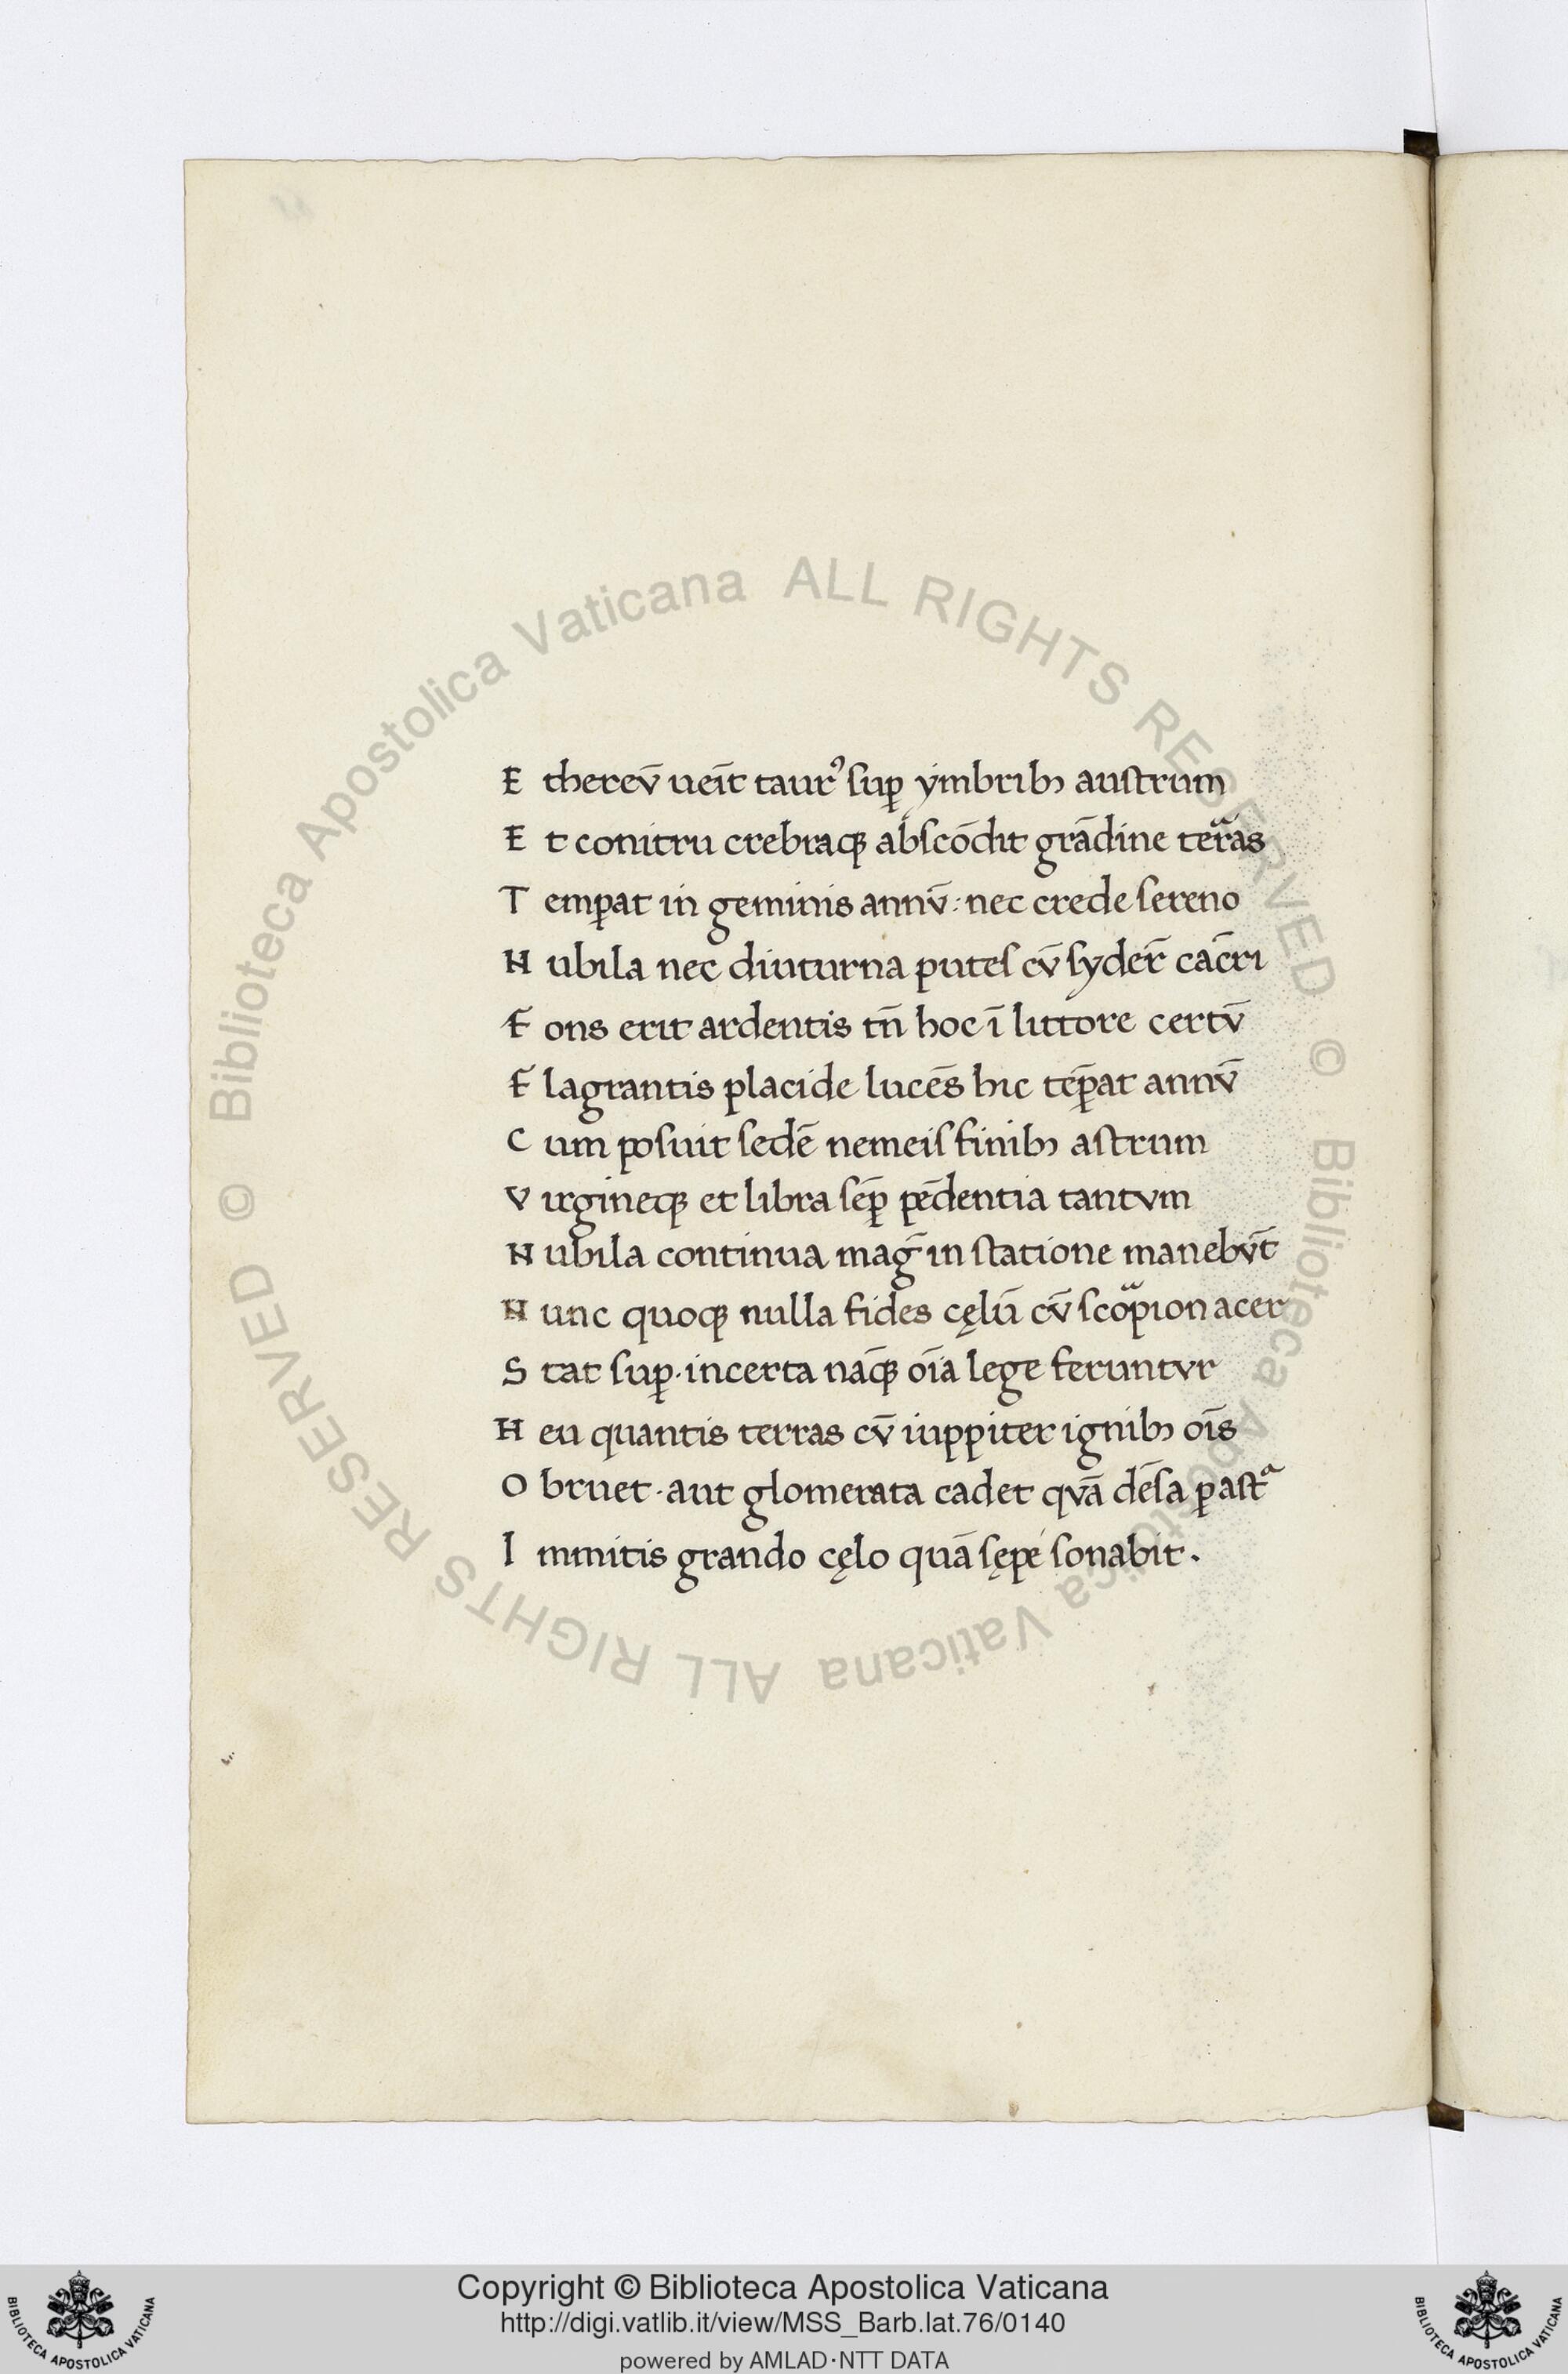 E therev̄ ueīt taurꝰ ſuꝑ ymbribꝫ auſtrum
E t conitru crebraqꝫ abſcōdit grādine terͣas
T emꝑat in geminis annv̄: nec crede ſereno
N ubila nec diuturna puteſ cv̄ ſyder̄ cācri
F ons erit ardentis tn̄ hoc ī littore certv̄
F lagrantis placide lucēs hic tēꝑat annv̄
C um poſuit ſedē nemeiſ finibꝫ aſtrum
V irgineqꝫ et libra ſēꝑ pēdentia tantvm
N ubila continua maḡ in ſtatione manebv̄t
N unc quoqꝫ nulla fides cęlū cv̄ ſcoͣpion acer
S tat ſuꝑ· incerta nāqꝫ oīa lege feruntvr
H eu quantis terras cv̄ iuppiter ignibꝫ oīs
O bruet· aut glomerata cadet qvā dēſa ꝑ aſtͣ
I mmitis grando cęlo quā ſępe ſonabit.
© Biblioteca Apostolica Vaticana ALL RIGHTS RESERVED © Biblioteca Apostolica Vaticana ALL RIGHTS RESERVED
Copyright © Biblioteca Apostolica Vaticana
http://digi.vatlib.it/view/MSS_Barb.lat.76/0140
powered by AMLAD·NTT DATA
BIBLIOTECA APOSTOLICA VATICANA
BIBLIOTECA APOSTOLICA VATICANA